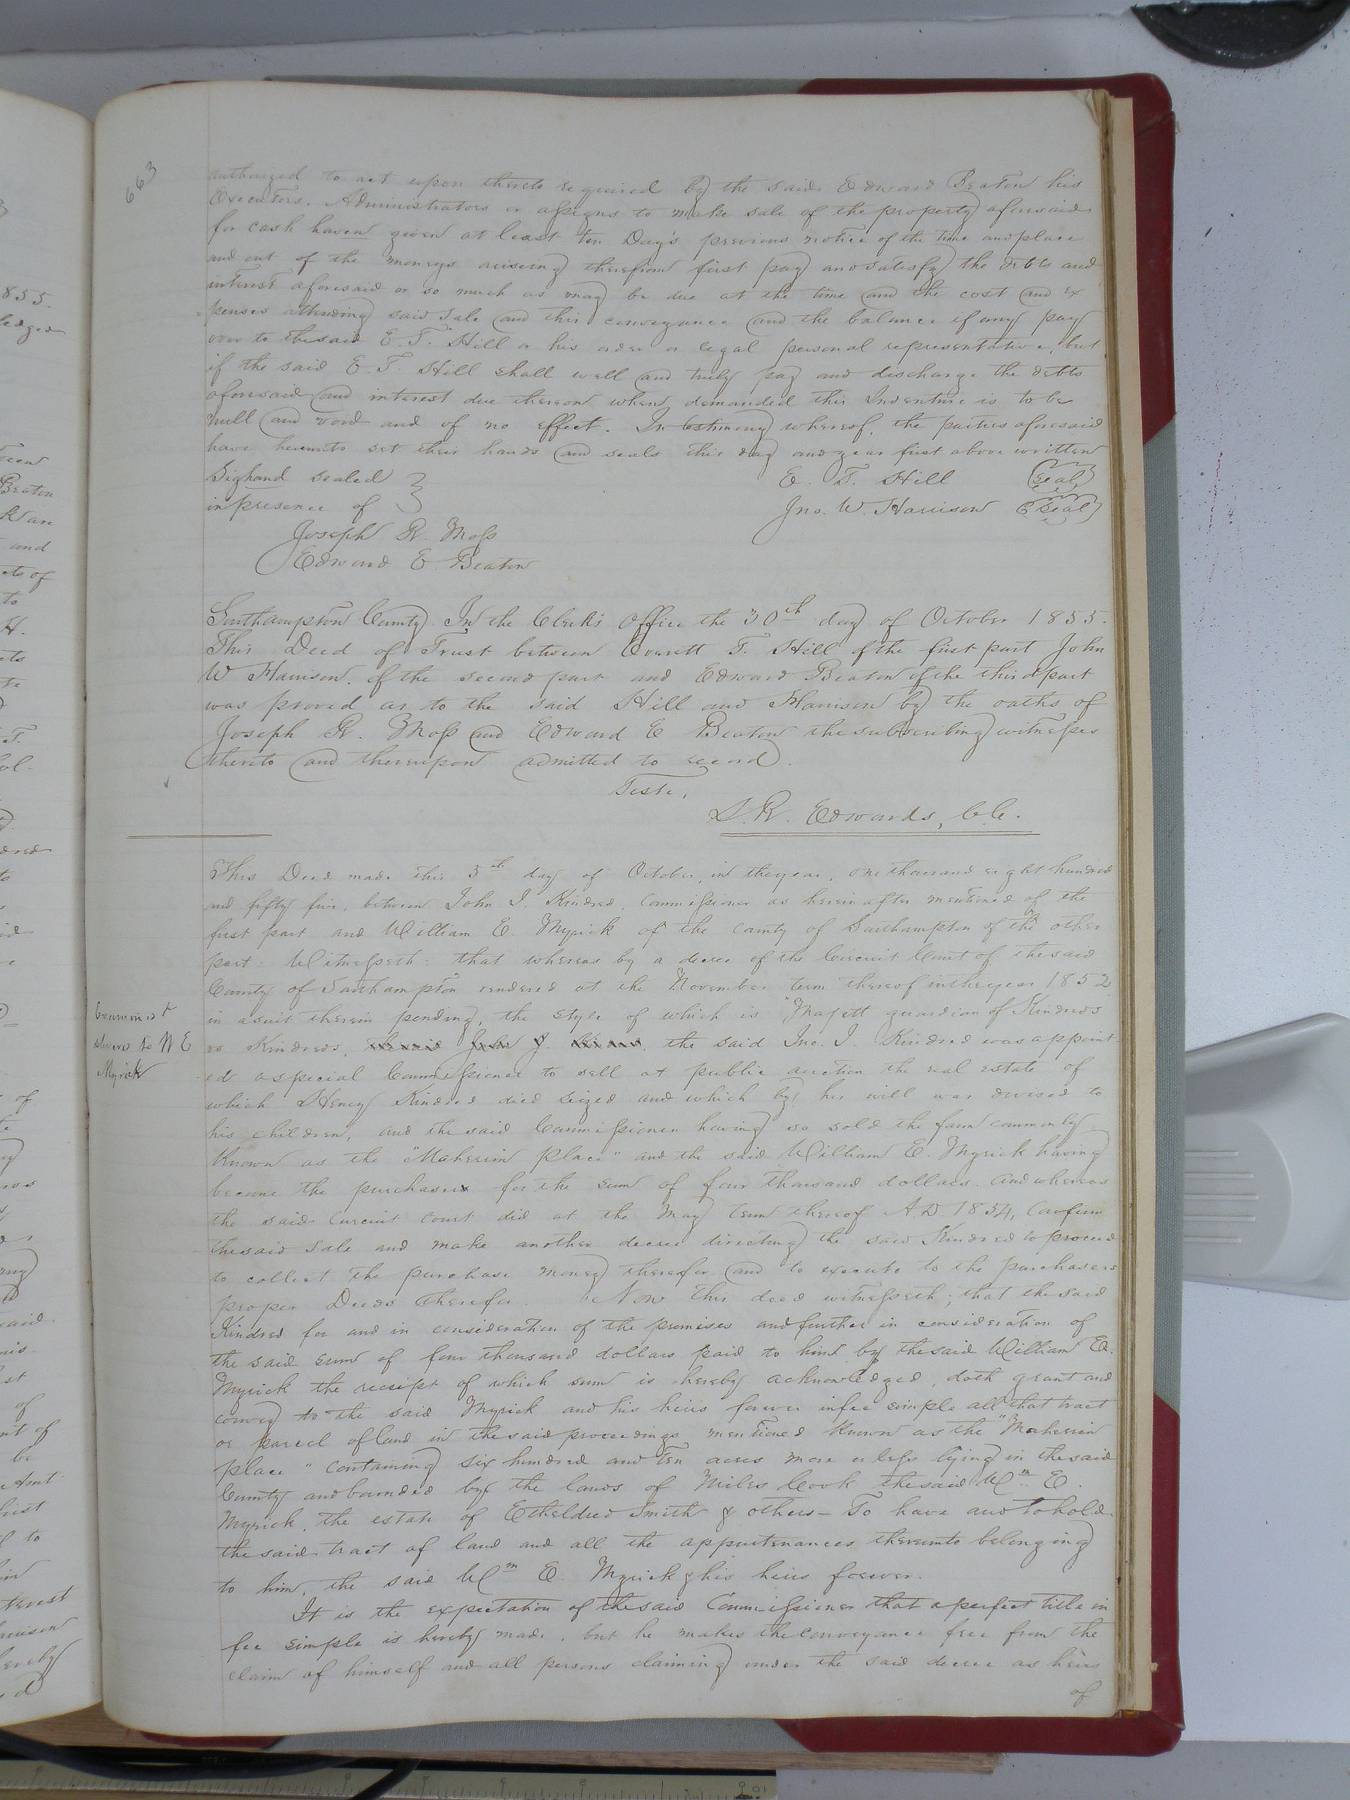 663
authorized to act upon thereto required by the said Edward Beaton his
Executors. Administrators or assigns to make sale of the property aforesaid
for cash haven given at least ten Day's previous notice of the time and place
and out of the moneys arising therefrom first pay and satisfy the debts and
interest aforesaid or so much as may be due at the time and the cost and ex
penses attending said sale and this conveyance and the balance if any pay
over to the said E. T. Hill or his order or legal personal representative, but
if the said E T. Hill shall well and truly pay and discharge the debts
aforesaid and interest due thereon when demanded this Indenture is to be
null and void and of no effect. In testimony whereof, the parties aforesaid
have hereunto set their hands and seals this day and year first above written
Signand sealed } E. T. Hill (Seal)
in presence of Jno. W. Harrison (Seal)
Joseph R. Moss
Edward E Beaton
Southampton County. In the Clerk's Office the 30th day of October 1855.
This Deed of Trust between Everett T. Hill of the first part John
W Harrison. of the second part and Edward Beaton of the third part
was proved as to the said Hill and Harrison by the oaths of
Joseph R. Moss and Edward E Beaton the subscribing witnesses
thereto and thereupon admitted to record.
Teste,
L. R. Edwards, C.C.
This Deed made this 5th day of October, in the year, one thousand eight hundred
and fifty five, between John J. Kindred, Commissioner as herein after mentioned of the
first part and William E. Myrick of the County of Southampton of the other
part: Witnesseth: that whereas by a decree of the Circuit Court of the said
County of Southampton rendered at the November term thereof in the year 1852
in a suit therein pending, the style of which is "Majett guardian of Kindreds
vs Kindreds, the said Jno. J. Kindred was appoint
ed a special Commissioner to sell at public auction the real estate of
which Henry Kindred died seized and which by his will was devised to
his children, and the said Commissioner having so sold the farm commonly
Known as the "Meherrin place" and the said William E. Myrick having
became the purchaser for the sum of four thousand dollars. And whereas
the said Circuit court did at the May term thereof A D 1854, Confirm
the said sale and make another decree directing the said Kindred to proceed
to collect the purchase money therefor and to execute to the purchasers
proper Deeds therefor. Now this deed witnesseth; that the said
Kindred for and in consideration of the premises and further in consideration of
the said sum of four thousand dollars paid to him by the said William E.
Myrick the receipt of which sum is hereby acknowledged, doth grant and
convey to the said Myrick and his heirs forever in fee simple all that tract
or parcel of land in the said proceedings mentioned Known as the "Meherrin
place" containing six hundred and ten acres more or less lying in the said
County and bounded by the lands of Miles Cook the said Wm E.
Myrick, the estate of Etheldred Smith & others - To have and to hold
the said tract of land and all the appurtenances thereunto belonging
to him, the said Wm E. Myrick & his heirs forever.
It is the expectation of the said Commissioner that a perfect title in
fee simple is hereby made, but he makes the conveyance free from the
claim of himself and all persons claiming under the said decree as heirs
of
Myrick